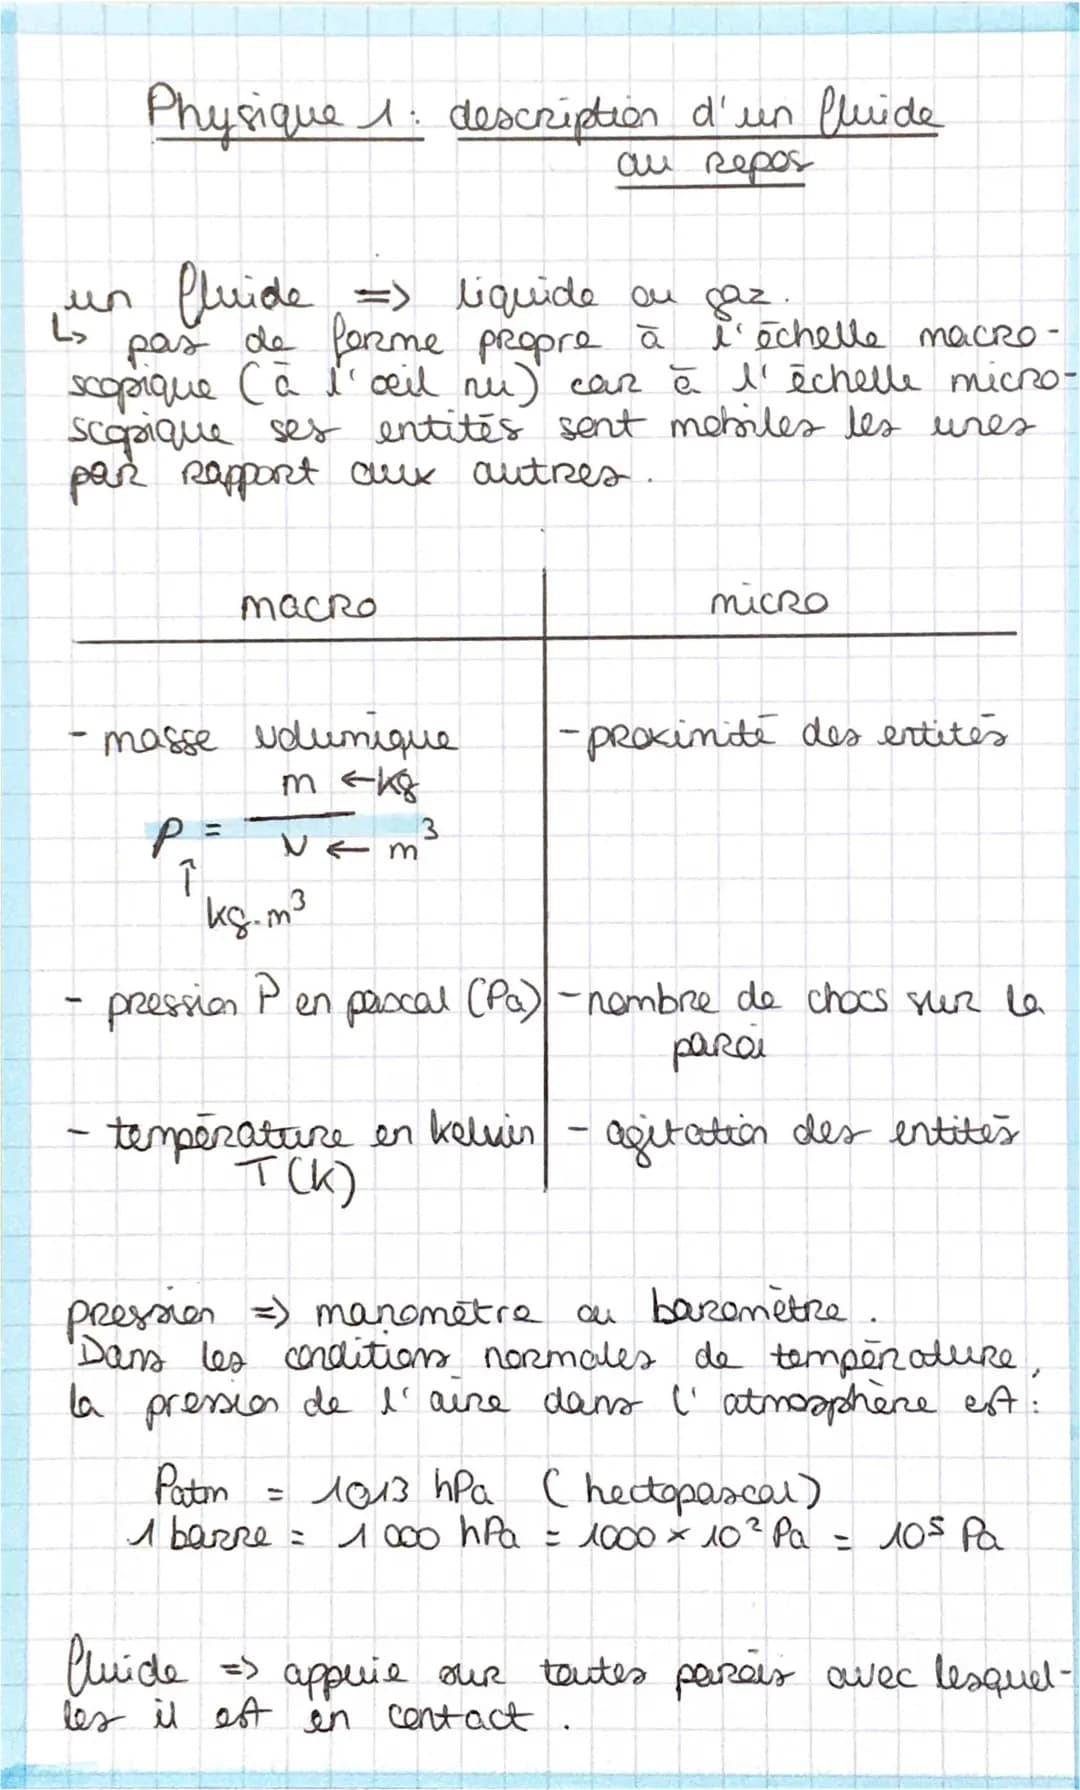 Physique 1: description d'un fluide
au repos
un fluide => liquide ou gaz.
↳ pas de forme propre à l'échelle macro-
scopique (à l'oeil nu) car à l'échelle micro-
scopique ses entités sont mobiles les unes
par rapport aux autres.
macro | micro
- masse volumique | - proximité des entités
m ← kg
ρ = ———
V ← m³
↑
kg.m³
- pression P en pascal (Pa) | - nombre de chocs sur la
paroi
- température en kelvin | - agitation des entités
T (K)
pression => manomètre ou baromètre.
Dans les conditions normales de température,
la pression de l'aire dans l'atmosphère est :
Patm = 1013 hPa (hectopascal)
1 barre = 1000 hPa = 1000 × 10² Pa = 10⁵ Pa
fluide => appuie sur toutes parois avec lesquel-
les il est en contact.